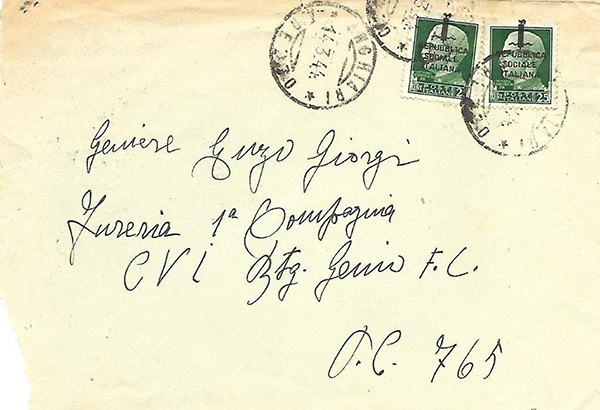 ANGHIARI
14.3.44
REPUBBLICA
SOCIALE
ITALIANA
25
REPUBBLICA
SOCIALE
ITALIANA
25
Geniere Enzo Giorgi
1ª Compagnia
CVI Btg. Genio F.C.
P.C. 765